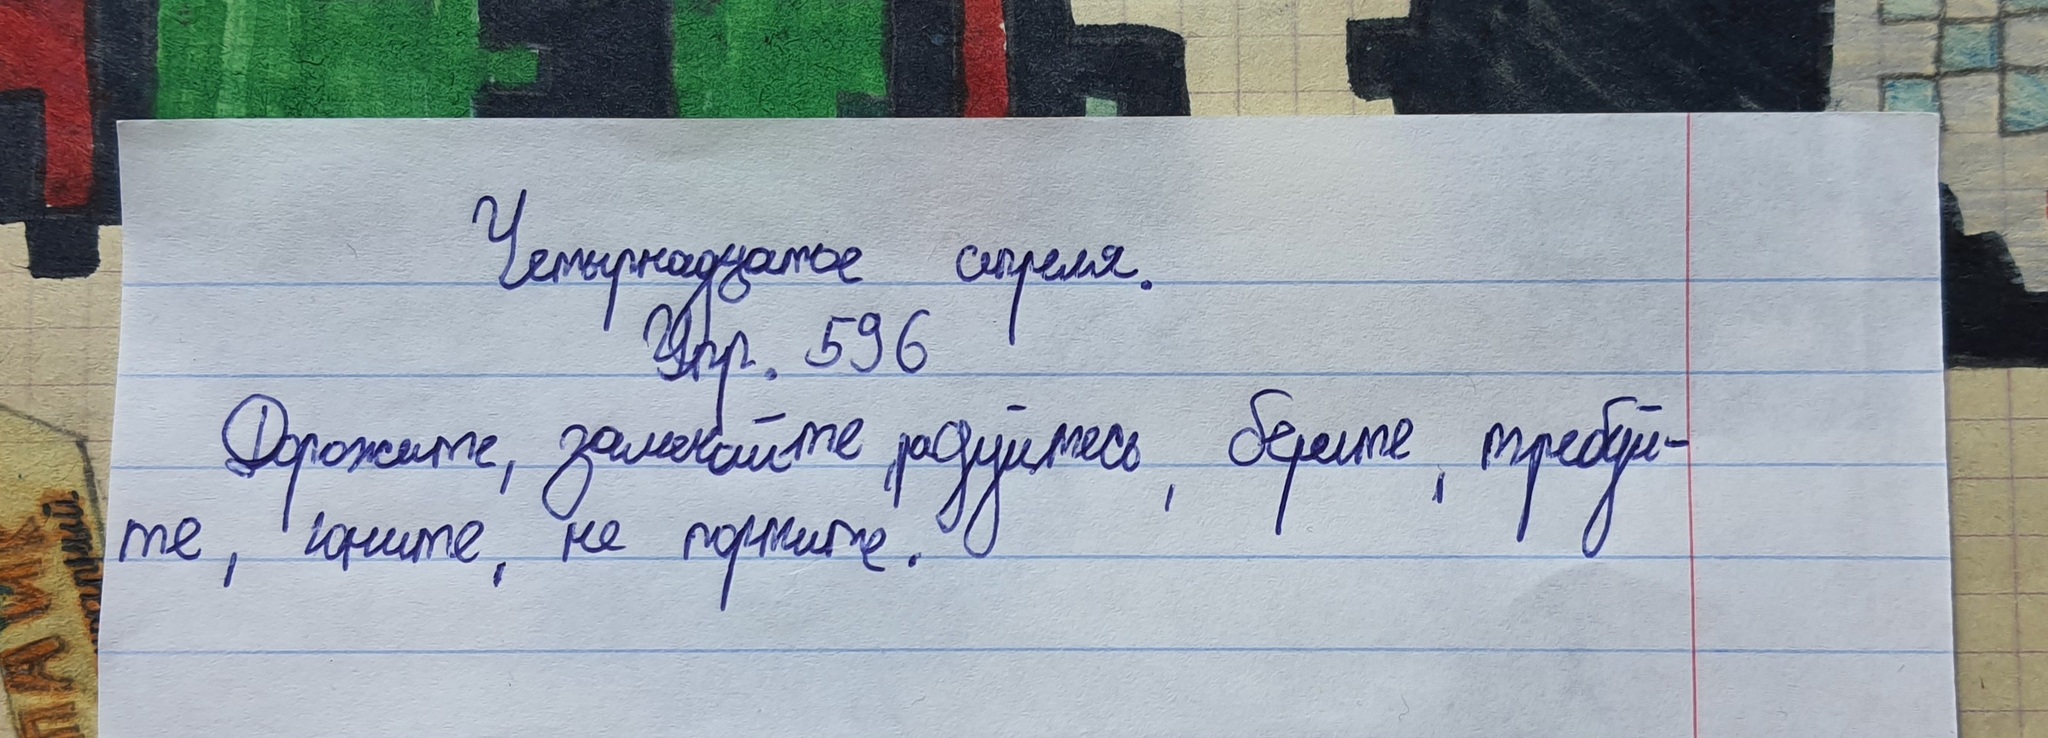 Четырнадцатое апреля.
Упр. 596
Дорожите, замечайте, радуйтесь, берите, требуй-
те, юните, не портите.